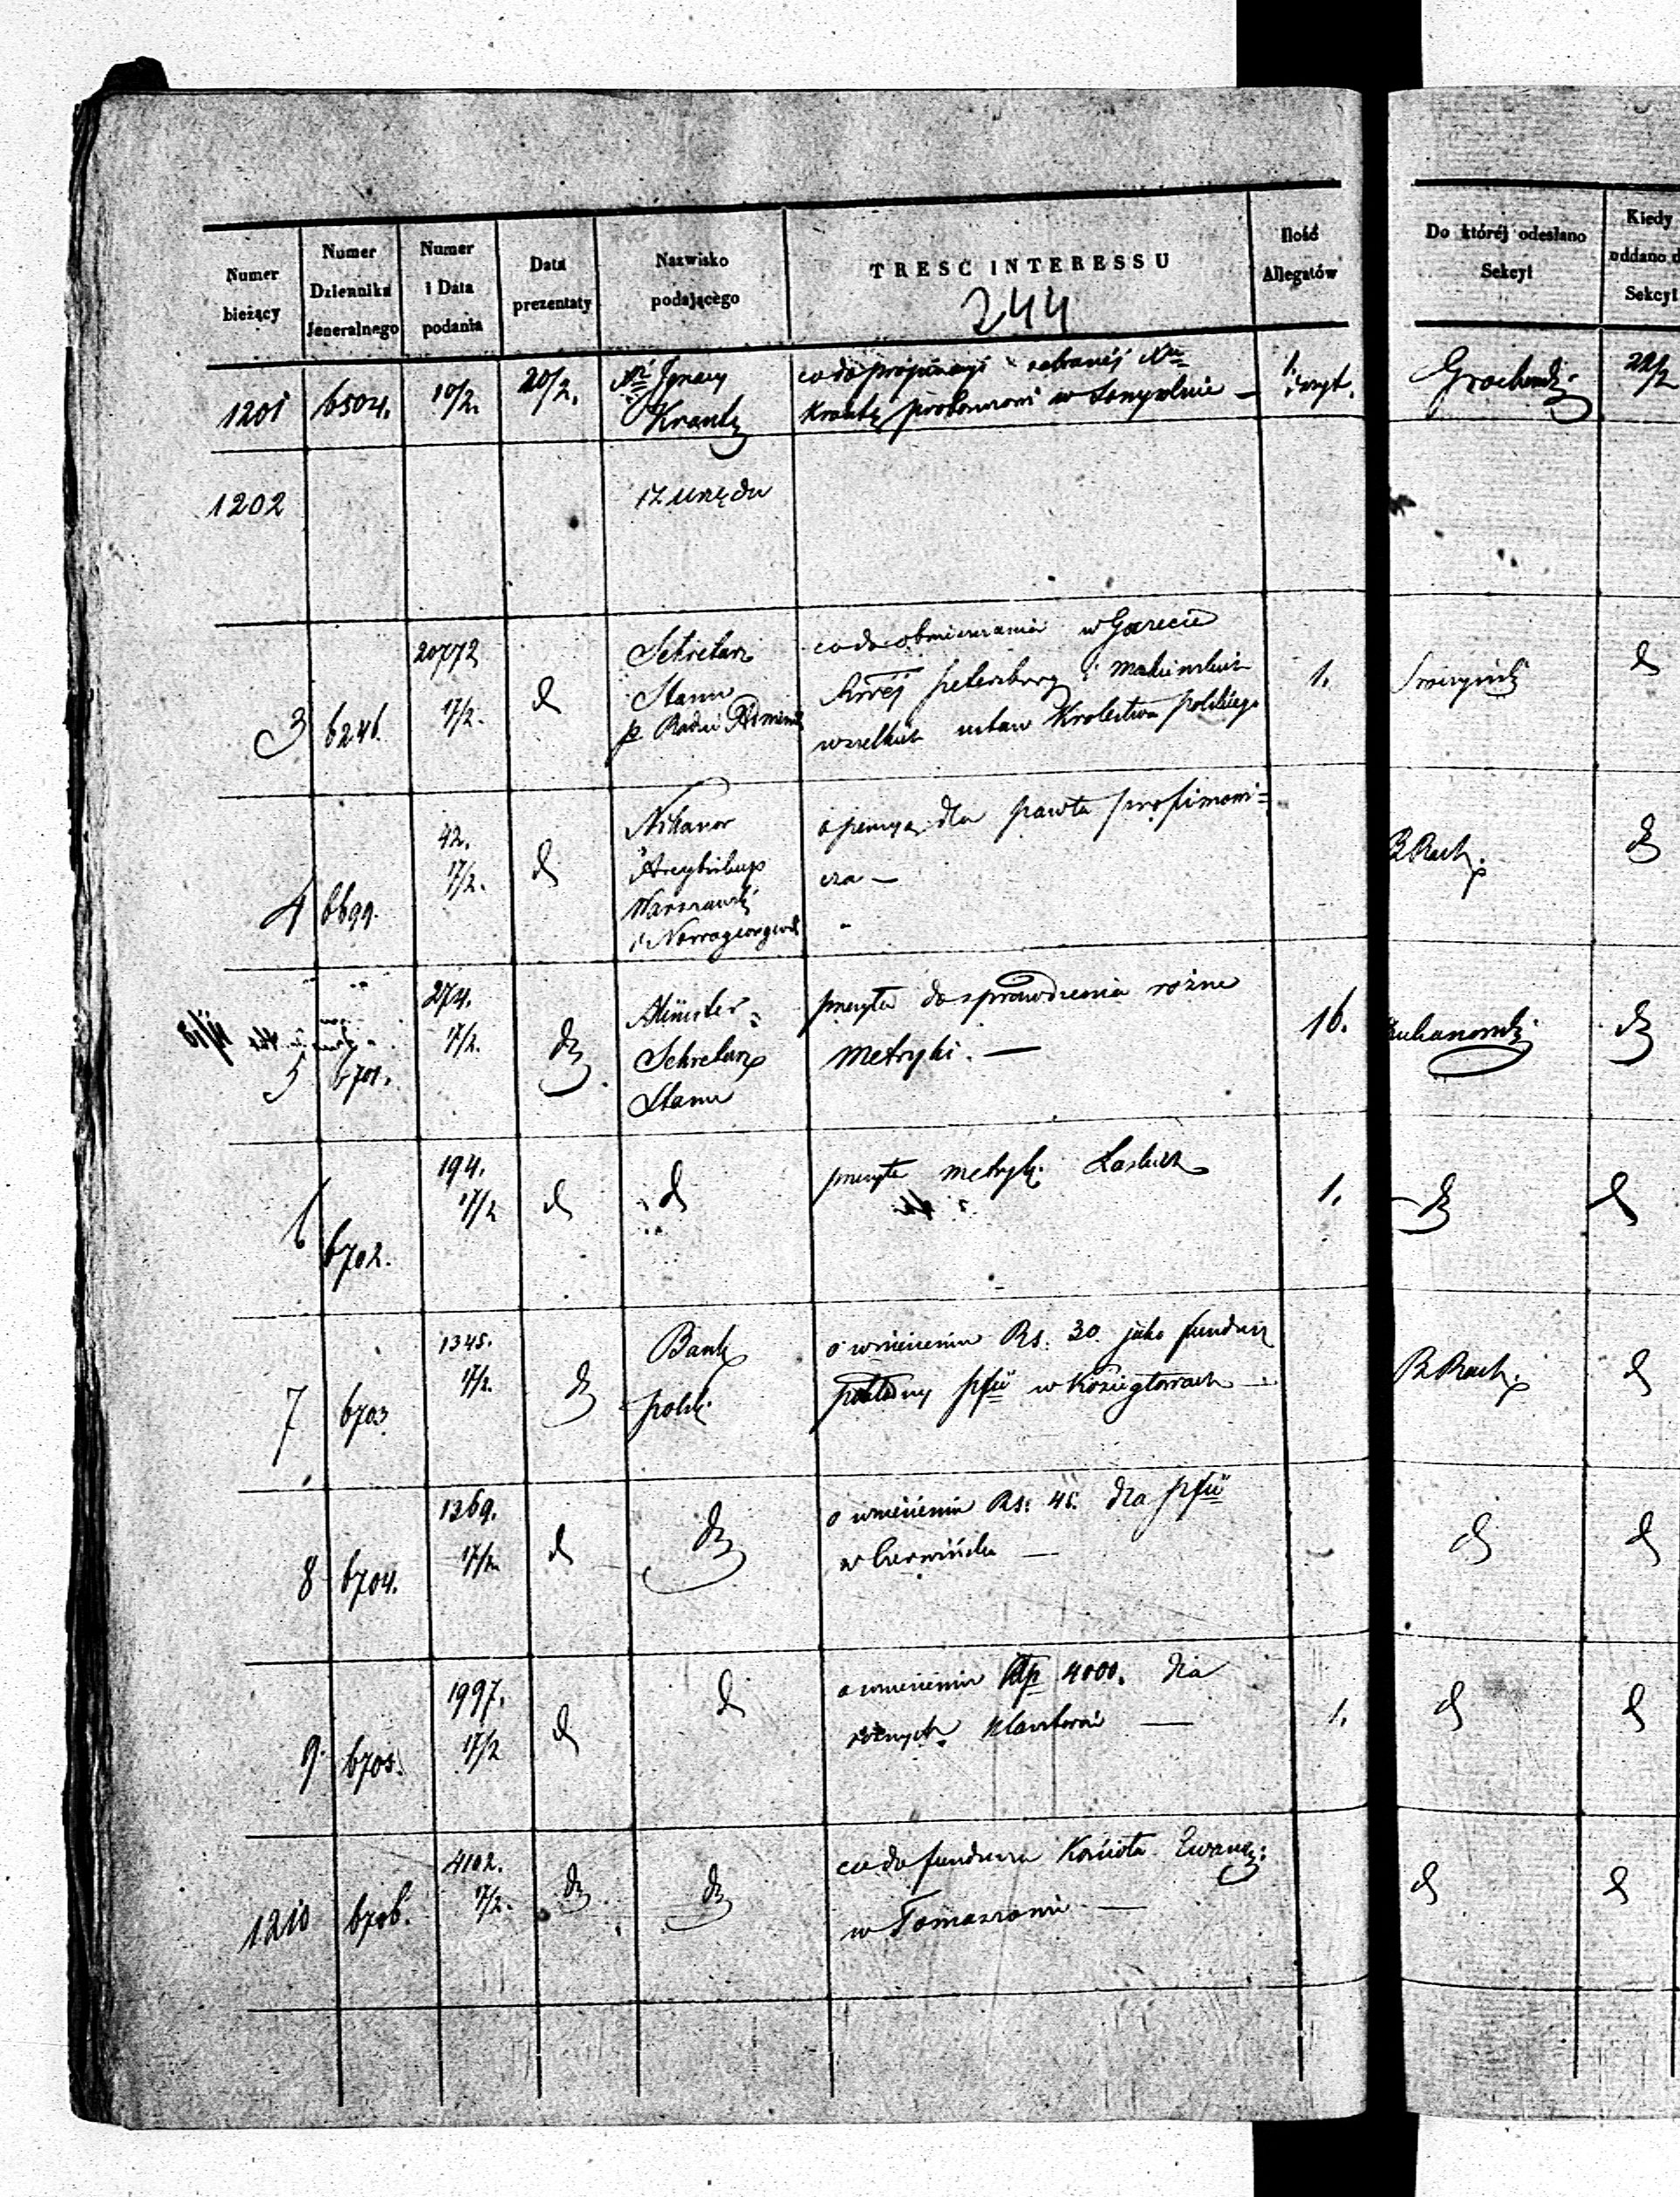 Numer bieżący
Numer Dziennika Jeneralnego
Numer i Data podania
Data prezentaty
Nazwisko podającego
TRESC INTERESSU
244
Ilość Allegatów
Do któréj odesłano Sekcyi
Kiedy oddano d
Sekcyi
1201 6504. 10/2. 20/2. Xdz Ignacy
Krantz
co do propinacyi zabranéj
Krantz proboszczowi w
1.
22/2
1202 Z urzędu
3 6246. 20772 17/2. d Sekretarz
Stanu
p. Radzie Admini
co do obmieszczenia w Gazecie
petersburg i
wszelkich ustaw Krolestwa polskiego
1. d
4 6699. 42. 17/2. d Nikanor
Arcybiskup
Warszawski
i Nowogeorgiewsk
o pensyą dla Pawła
cza —
B Rach. d
5 6701. 274. 17/2. d Minister
Sekretarz
Stanu
przesyła do sprawdzenia rożne
metryki. —
16. d
6 6702. 194. 17/2 d d
przesyła metrykę
1. d d
7 6703 1345. 17/2. d Bank
polski
o wniesieniu Rs. 30 jako fundusz
w Koziegłowach —
B Rach. d
8 6704. 1369. 17/2 d d
o wniesieniu Rs. 45. dla
w Czerwińsku —
d d
9 6705. 1997. 17/2 d d
o wniesieniu złp 4000. dla
różnych klasztorów —
1. d d
1210 6706. 4102. 17/2. d d
co do funduszu Kościoła Ewang:
w Tomaszowie —
d d